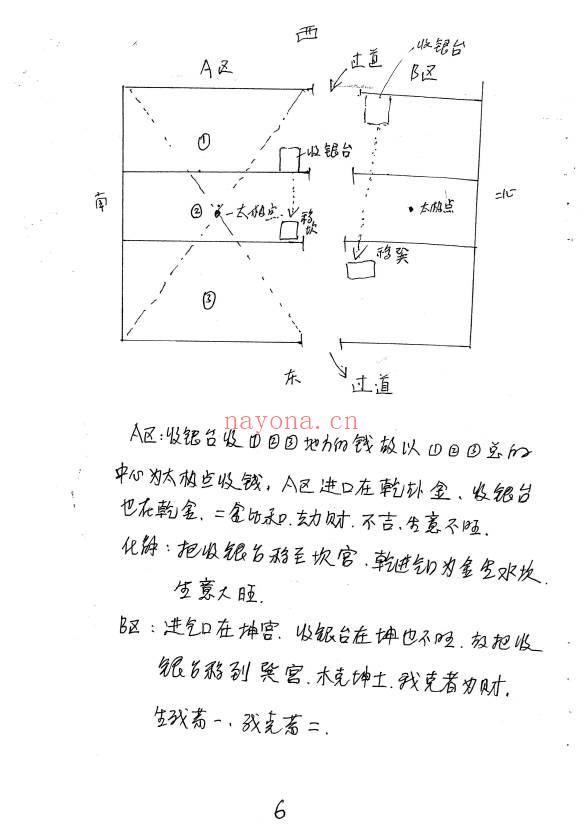 西
A区
过道
收银台
B区
①
收银台
南
②
太极点
移坎
太极点
北
移巽
③
东
过道
nayona.cn
A区:收银台收①②③地方的钱故以①②③总的
中心为太极点收钱,A区进口在乾卦金、收银台
也在乾金.二金比和.劫财.不吉.生意不旺.
化解:把收银台移至坎宫.乾进气口为金生水坎.
生意大旺.
B区:进气口在坤宫.收银台在坤也不旺.故把收
银台移到巽宫.木克坤土.我克者为财.
生我者一、我克者二.
6